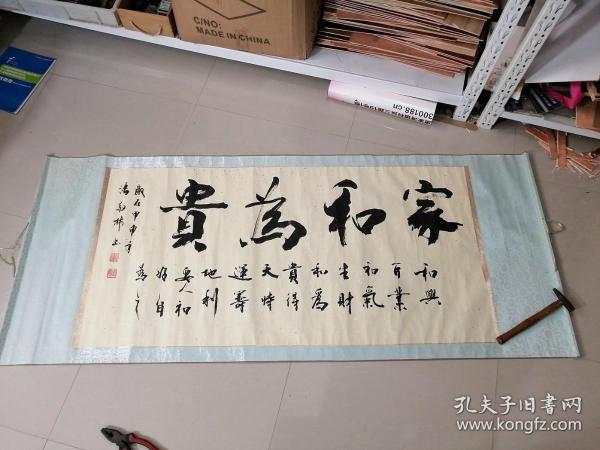 家和為貴
和興
百業
和氣
生財
和為
貴得
天時
運籌
地利
要人和
好自
為之
歲在甲申年
C/NO:
MADE IN CHINA
300188.cn
孔夫子旧書网
www.kongfz.com